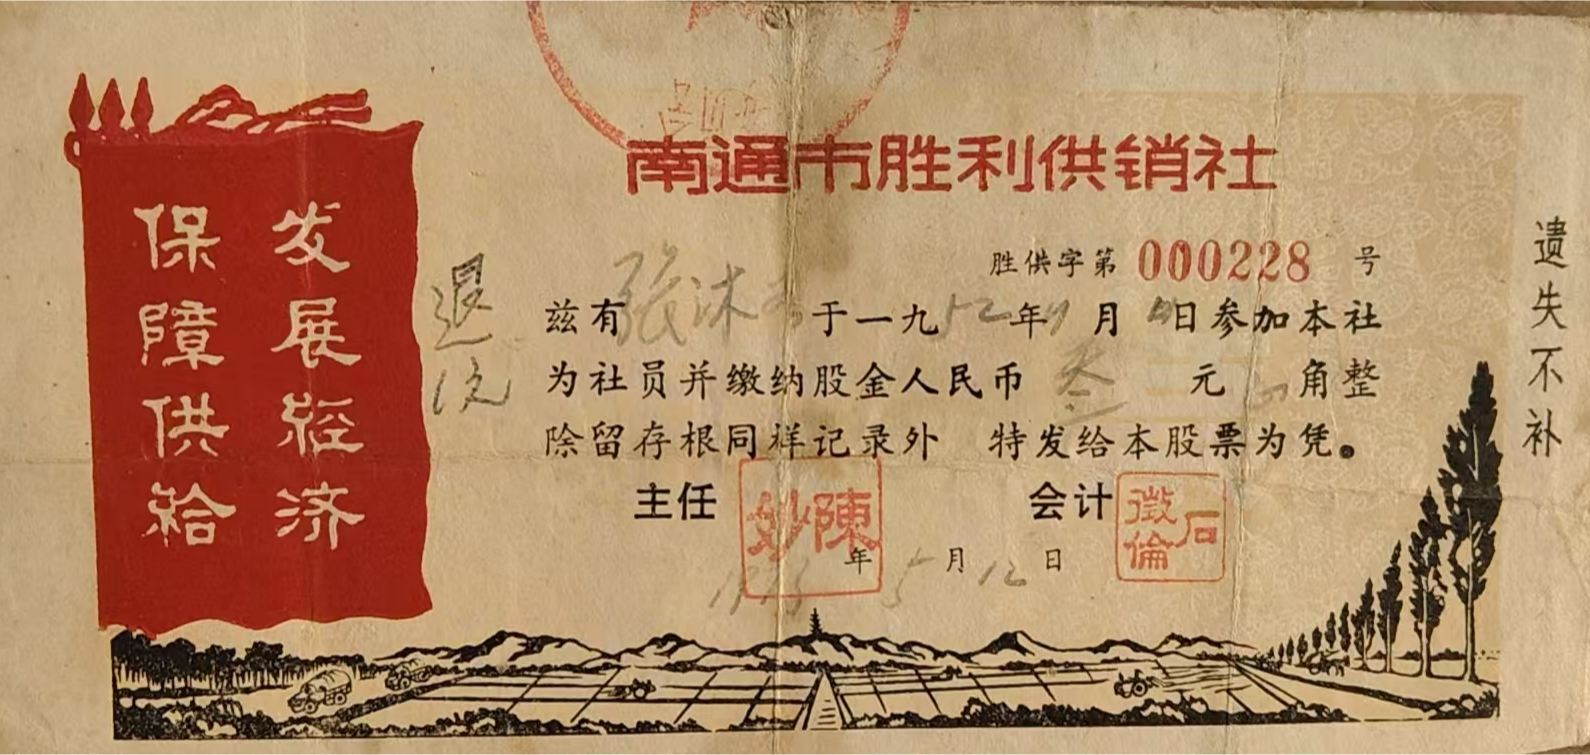 南通市胜利供销社
胜供字第 000228 号
兹有张沐 于一九52年 月 日参加本社
为社员并缴纳股金人民币叁元 角整
除留存根同样记录外 特发给本股票为凭。
主任 陳妙 会计 石徵倫
1973年5月12日
发展经济
保障供给
退讫
遗失不补